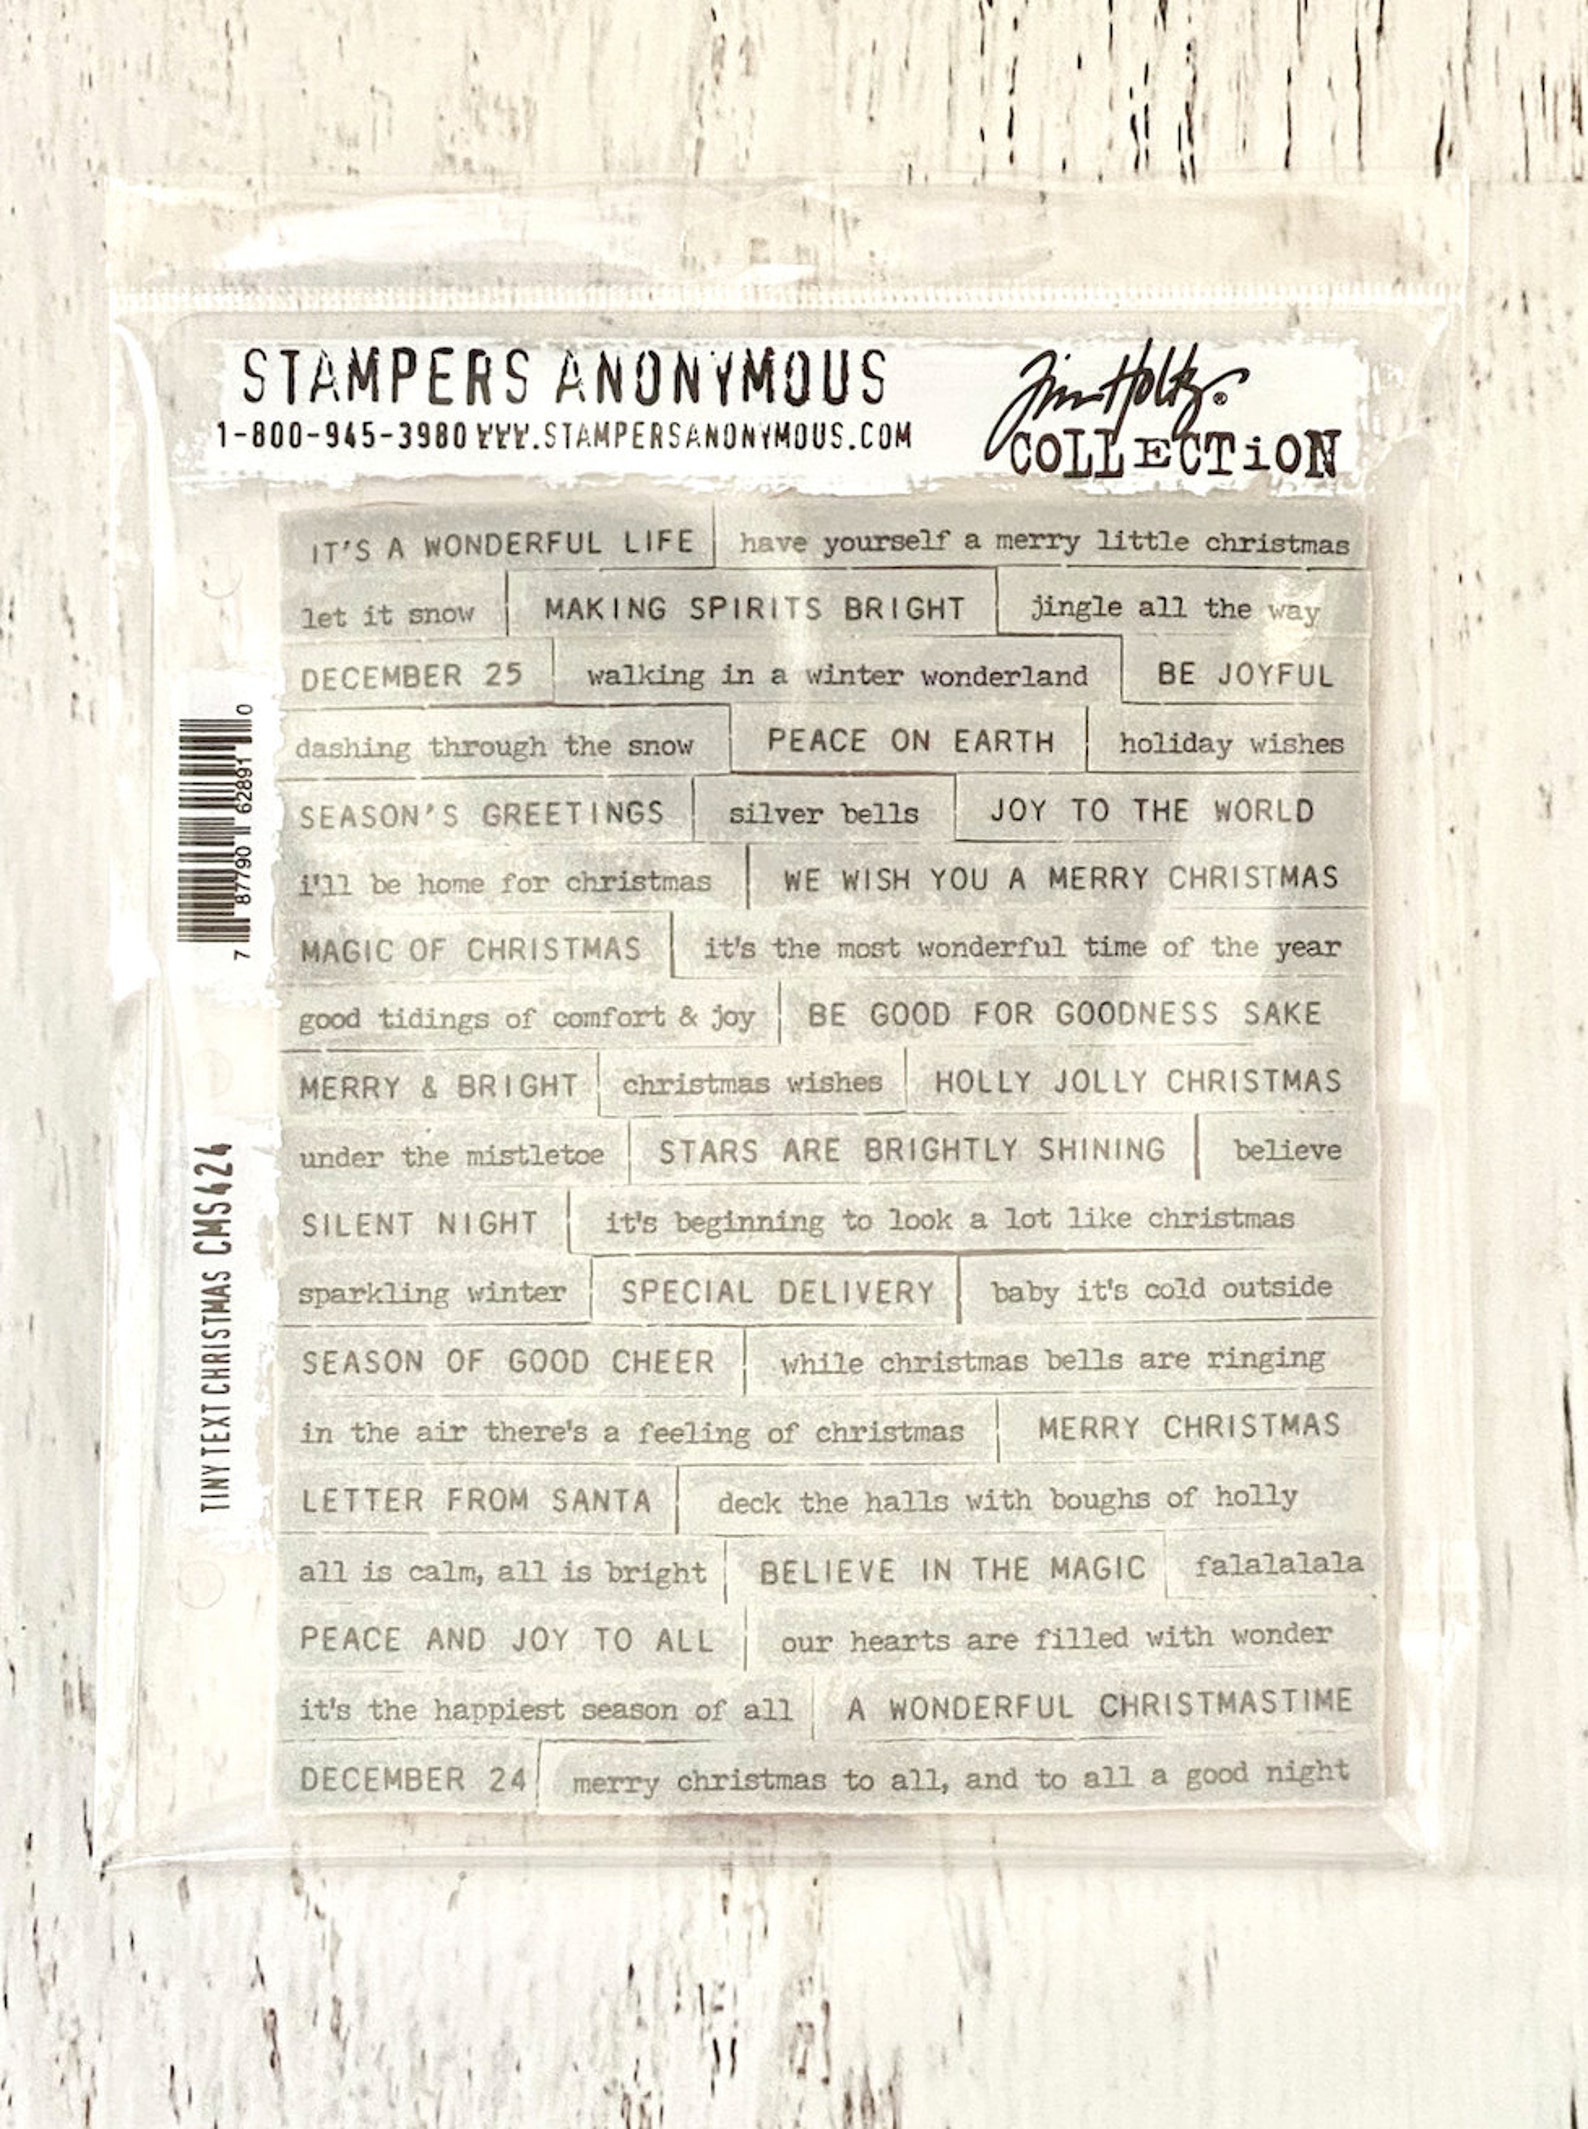 STAMPERS ANONYMOUS
1-800-945-3980 WWW.STAMPERSANONYMOUS.COM
Tim Holtz®
COLLECTiON
IT'S A WONDERFUL LIFE have yourself a merry little christmas
let it snow MAKING SPIRITS BRIGHT jingle all the way
DECEMBER 25 walking in a winter wonderland BE JOYFUL
dashing through the snow PEACE ON EARTH holiday wishes
SEASON'S GREETINGS silver bells JOY TO THE WORLD
i'll be home for christmas WE WISH YOU A MERRY CHRISTMAS
MAGIC OF CHRISTMAS it's the most wonderful time of the year
good tidings of comfort & joy BE GOOD FOR GOODNESS SAKE
MERRY & BRIGHT christmas wishes HOLLY JOLLY CHRISTMAS
under the mistletoe STARS ARE BRIGHTLY SHINING believe
SILENT NIGHT it's beginning to look a lot like christmas
sparkling winter SPECIAL DELIVERY baby it's cold outside
SEASON OF GOOD CHEER while christmas bells are ringing
in the air there's a feeling of christmas MERRY CHRISTMAS
LETTER FROM SANTA deck the halls with boughs of holly
all is calm, all is bright BELIEVE IN THE MAGIC falalalala
PEACE AND JOY TO ALL our hearts are filled with wonder
it's the happiest season of all A WONDERFUL CHRISTMASTIME
DECEMBER 24 merry christmas to all, and to all a good night
7 87790 62891 0
TINY TEXT CHRISTMAS CMS424